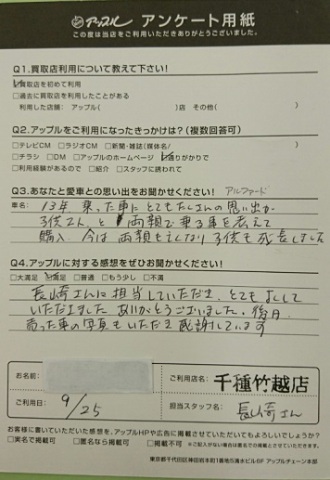 アップル アンケート用紙
この度は当店をご利用いただきありがとうございました。
Q1.買取店利用について教えて下さい!
□買取店を初めて利用
□過去に買取店を利用したことがある
利用した店舗: アップル( )店 その他( )
Q2.アップルをご利用になったきっかけは?(複数回答可)
□テレビCM □ラジオCM □新聞・雑誌(媒体名/ )
□チラシ □DM □アップルのホームページ □通りがかりで
□利用経験があるので □紹介 □スタッフに誘われて
Q3.あなたと愛車との思い出をお聞かせください! アルファード
車名:
13年 乗った車にとてもたくさんの思い出が
子供さんと 両親で乗る車を考えて
購入 今は 両親も亡くなり 子供も成長しました
Q4.アップルに対する感想をぜひお聞かせください!
□大満足 □満足 □普通 □もう少し □不満
長崎さんに担当していただき、とても よくして
いただきました ありがとうございました。後日
売った車の写真もいただき 感謝しています
お名前:
ご利用店名: 千種竹越店
ご利用日: 9/25
担当スタッフ名: 長崎さん
お客様に書いていただいた感想を、アップルHPや広告に掲載させていただいてもよろしいでしょうか?
□実名で掲載可 □匿名なら掲載可 □掲載不可 ※ご記入がない場合は匿名で掲載させていただきます。
アップルチェーン本部